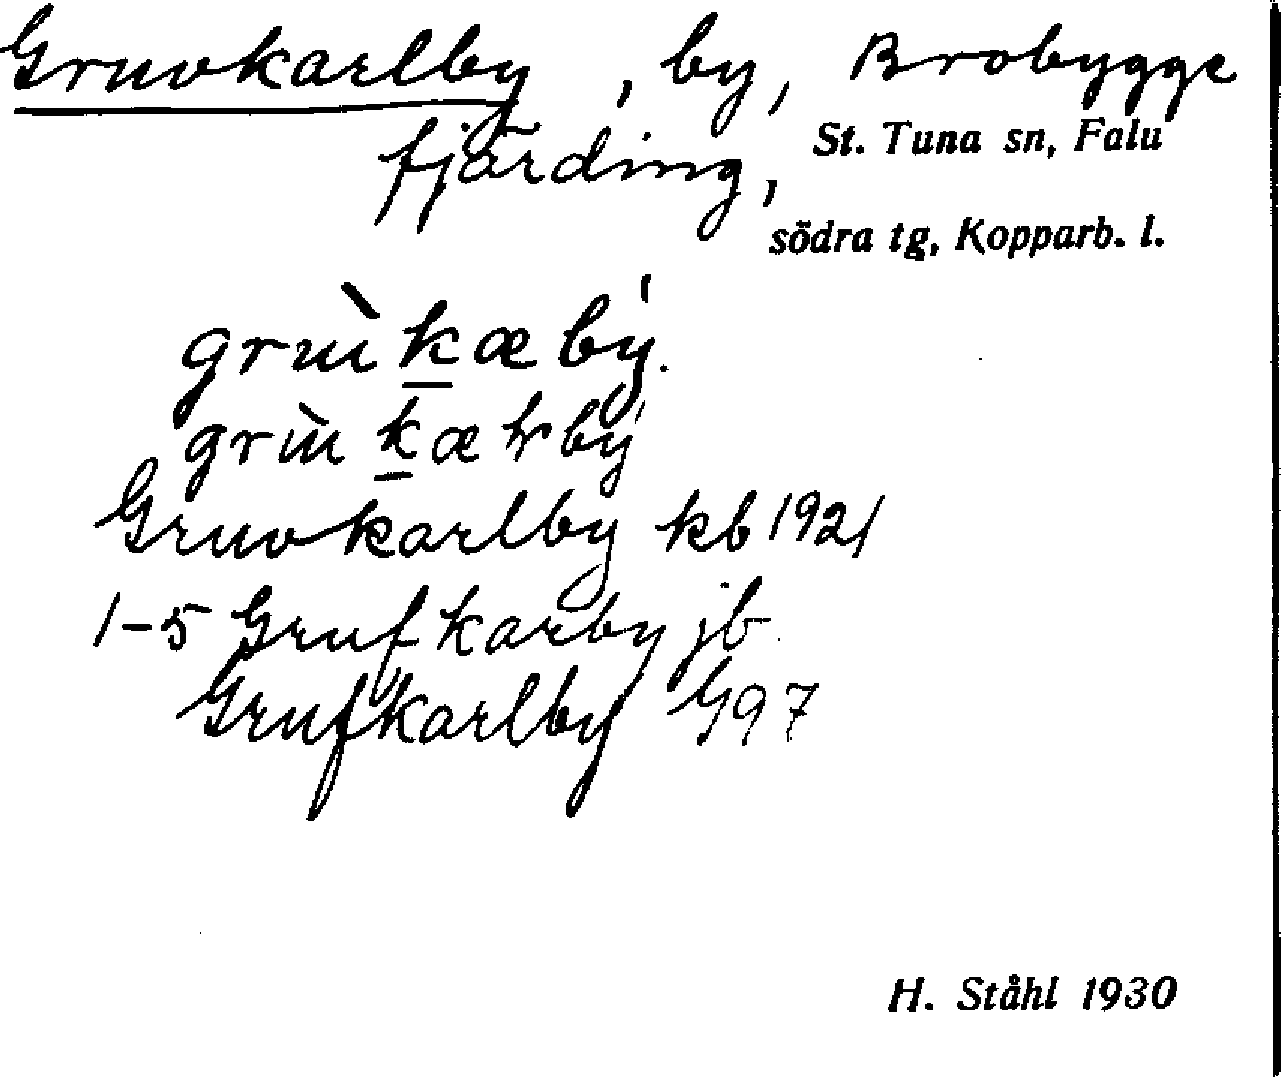 Gruvkarlby, by, Brobygge
fjärding, St. Tuna sn, Falu
södra tg, Kopparb. l.
Gruvkarlby kb 1921
1-5 Grufkarby jb.
Grufkarlby G97
H. Ståhl 1930